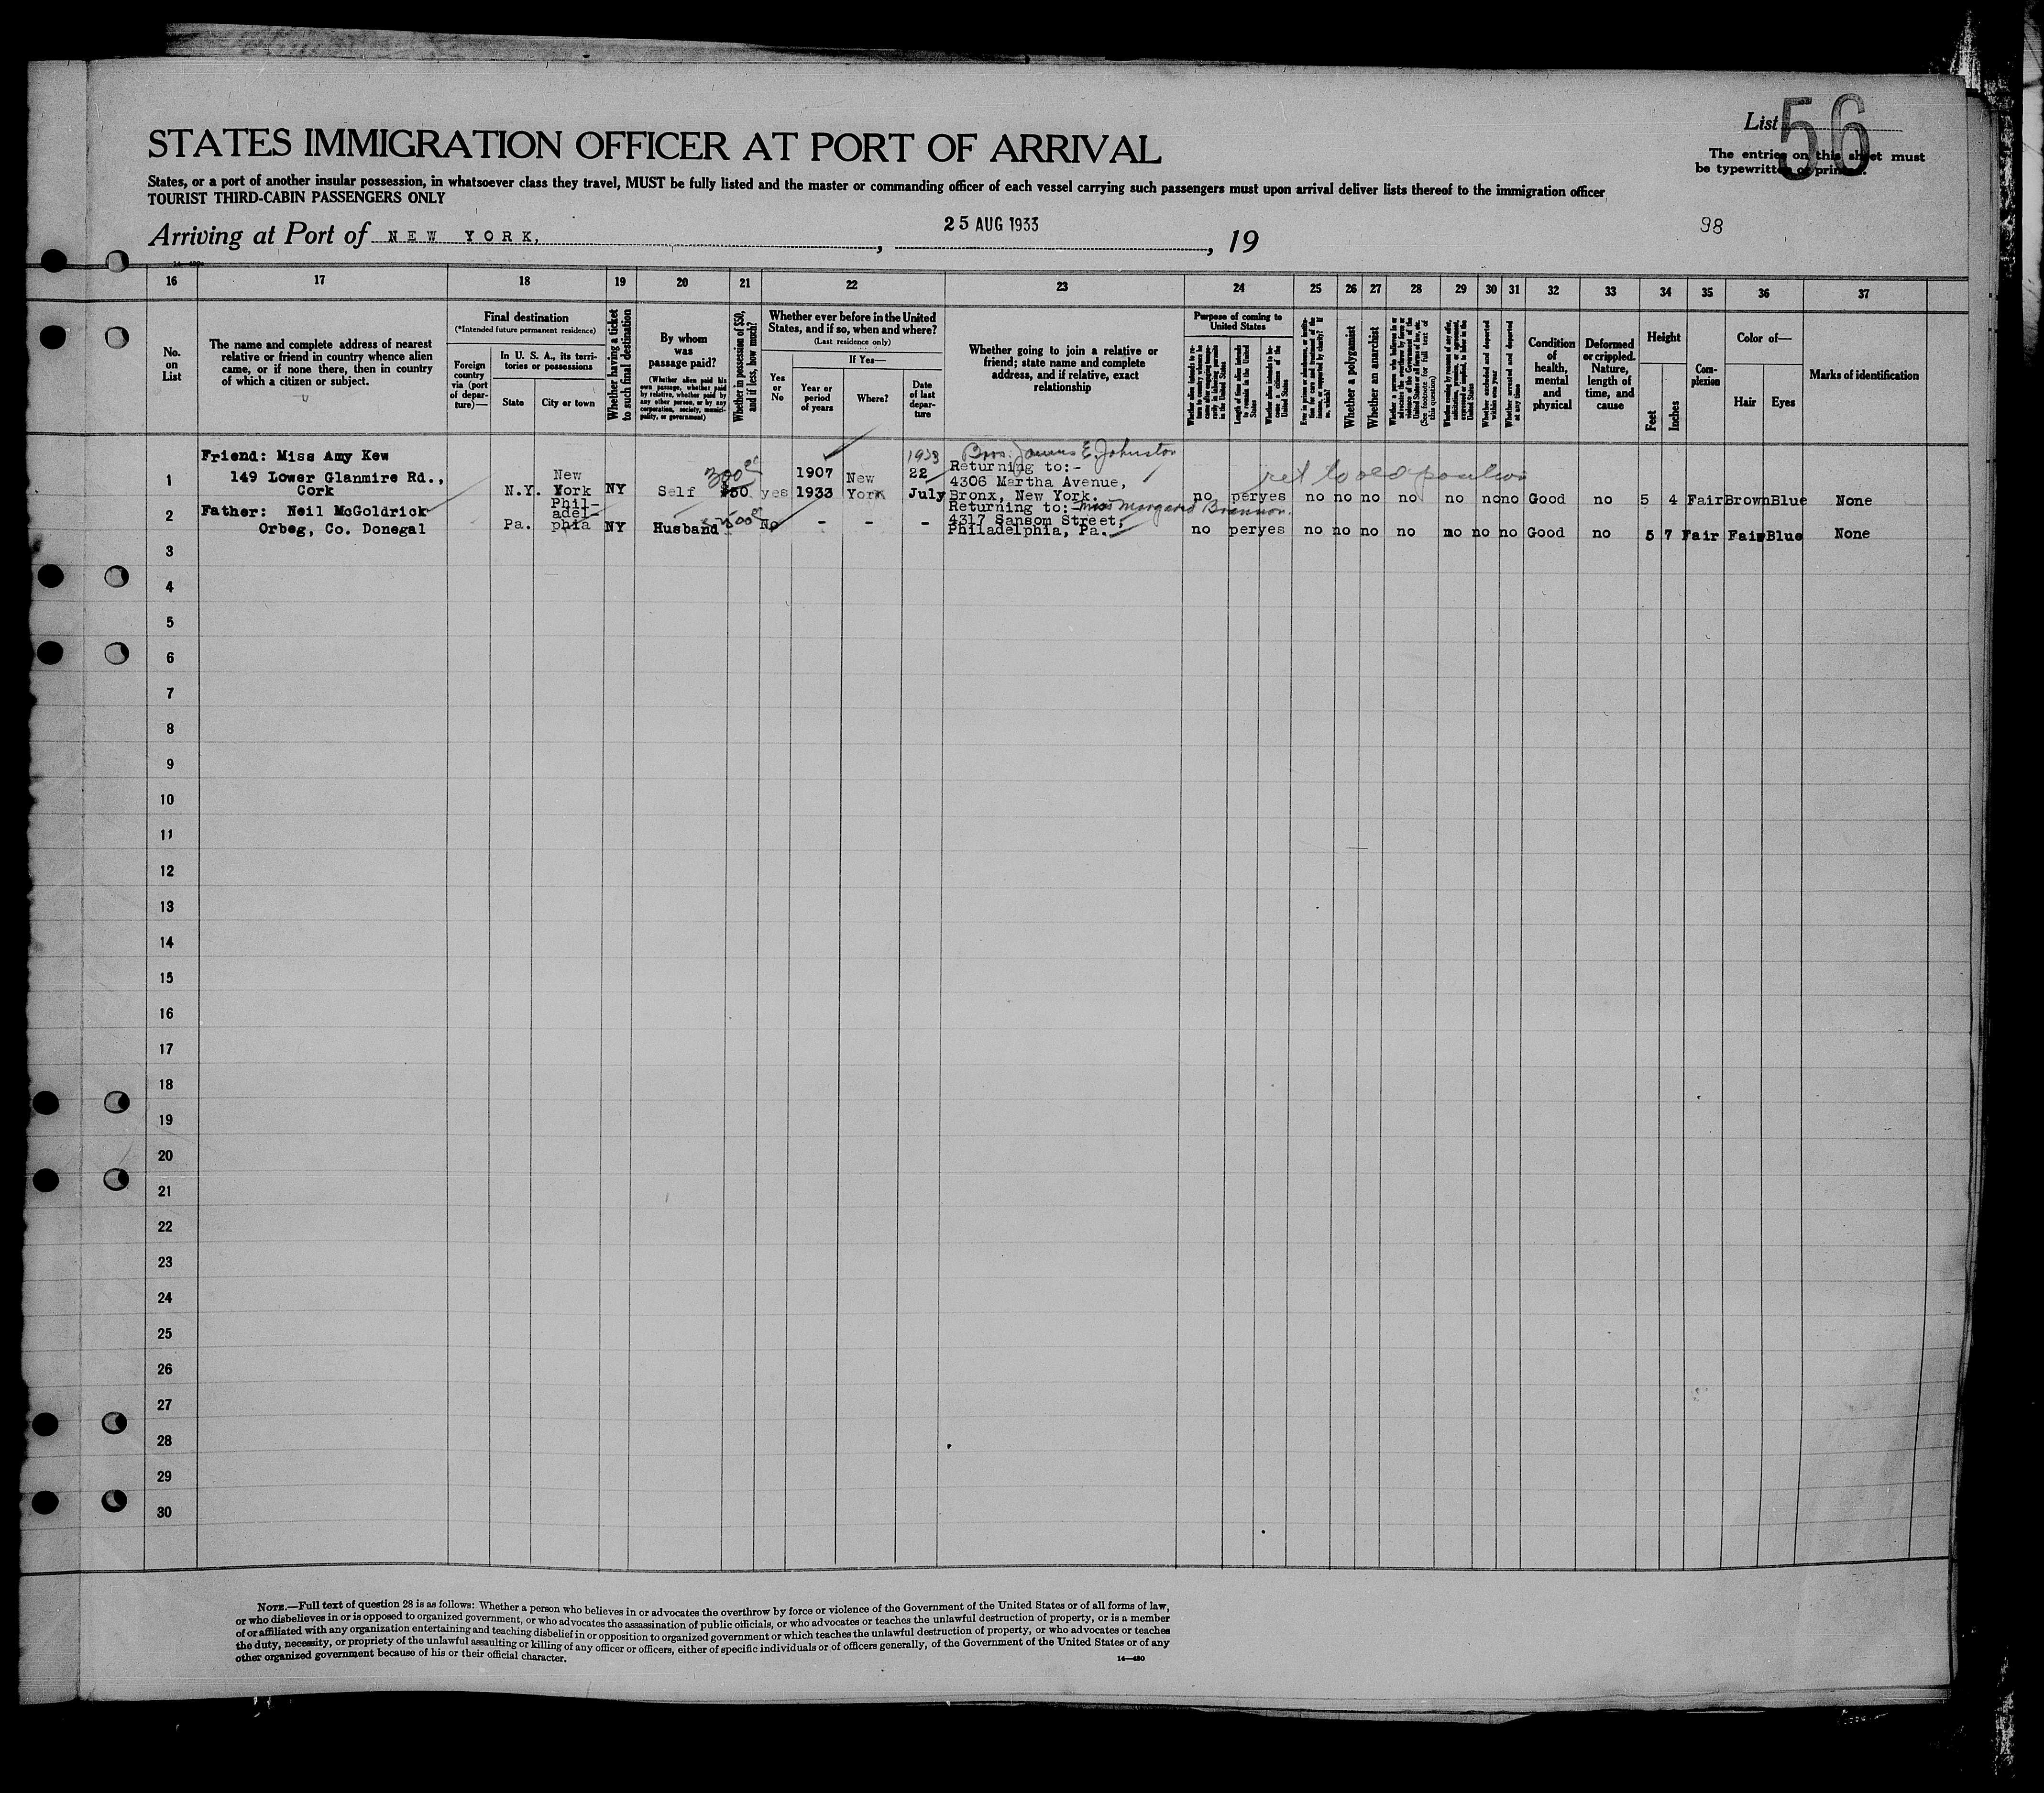 List 56
The entries on this sheet must
be typewritten or printed.
STATES IMMIGRATION OFFICER AT PORT OF ARRIVAL
States, or a port of another insular possession, in whatsoever class they travel, MUST be fully listed and the master or commanding officer of each vessel carrying such passengers must upon arrival deliver lists thereof to the immigration officer
TOURIST THIRD-CABIN PASSENGERS ONLY
Arriving at Port of NEW YORK, , 25 AUG 1933 , 19
98
16 17 18 19 20 21 22 23 24 25 26 27 28 29 30 31 32 33 34 35 36 37
No.
on
List
The name and complete address of nearest
relative or friend in country whence alien
came, or if none there, then in country
of which a citizen or subject.
Final destination
(*Intended future permanent residence)
Foreign
country
via (port
of depar-
ture)—
In U. S. A., its terri-
tories or possessions
State
City or town
Whether having a ticket
to such final destination
By whom
was
passage paid?
(Whether alien paid his
own passage, whether paid
by relative, whether paid by
any other person, or by any
corporation, society, munici-
pality, or government)
Whether in possession of $50,
and if less, how much?
Whether ever before in the United
States, and if so, when and where?
(Last residence only)
Yes
or
No
If Yes—
Year or
period
of years
Where?
Date
of last
depar-
ture
Whether going to join a relative or
friend; state name and complete
address, and if relative, exact
relationship
Purpose of coming to
United States
Whether alien intends to re-
turn to country whence he
came after engaging tempo-
rarily in laboring pursuits
in the United States
Length of time alien intends
to remain in the United
States
Whether alien intends to be-
come a citizen of the
United States
Whether a polygamist
Whether an anarchist
(See footnote for full text of
this question)
Whether excluded and deported
within one year
Whether arrested and deported
at any time
Condition
of
health,
mental
and
physical
Deformed
or crippled.
Nature,
length of
time, and
cause
Height
Feet
Inches
Com-
plexion
Color of—
Hair
Eyes
Marks of identification
1
Friend: Miss Amy Kew
149 Lower Glanmire Rd.,
Cork
N.Y.
New
York
NY
Self
300
$50
yes
1907
1933
New
York
1933
22
July
Bro. James E. Johnston
Returning to:-
4306 Martha Avenue,
Bronx, New York.
ret to old position
no per yes no no no no no no no Good no 5 4 Fair Brown Blue None
2
Father: Neil McGoldrick
Orbeg, Co. Donegal
Pa.
Phil-
adel-
phia
NY
Husband
No
- - -
Returning to:- Miss Margaret Brannon.
4317 Sansom Street,
Philadelphia, Pa.
no per yes no no no no no no no Good no 5 7 Fair Fair Blue None
3
4
5
6
7
8
9
10
11
12
13
14
15
16
17
18
19
20
21
22
23
24
25
26
27
28
29
30
NOTE.—Full text of question 28 is as follows: Whether a person who believes in or advocates the overthrow by force or violence of the Government of the United States or of all forms of law,
or who disbelieves in or is opposed to organized government, or who advocates the assassination of public officials, or who advocates or teaches the unlawful destruction of property, or is a member
of or affiliated with any organization entertaining and teaching disbelief in or opposition to organized government or which teaches the unlawful destruction of property, or who advocates or teaches
the duty, necessity, or propriety of the unlawful assaulting or killing of any officer or officers, either of specific individuals or of officers generally, of the Government of the United States or of any
other organized government because of his or their official character.
14—480